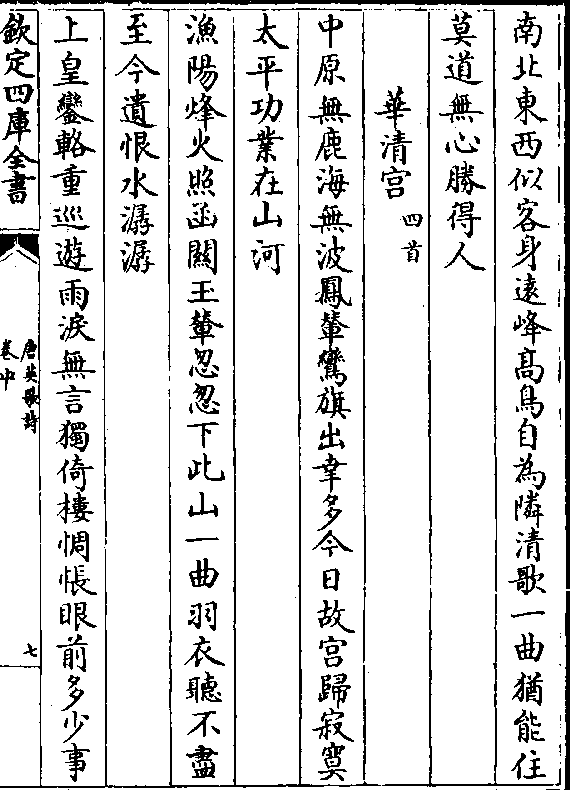 南北東西似客身逺峰髙鳥自為隣清歌一曲猶能住
莫道無心勝得人
華清宫四首
中原無鹿海無波鳳輦鸞旗出幸多今日故宫歸寂寞
太平功業在山河
漁陽烽火照函關玉輦忽忽下此山一曲羽衣聽不盡
至今遺恨水潺潺
上皇鑾輅重巡遊雨淚無言獨倚樓惆悵眼前多少事
欽定四庫全書
唐英歌詩
卷中
七